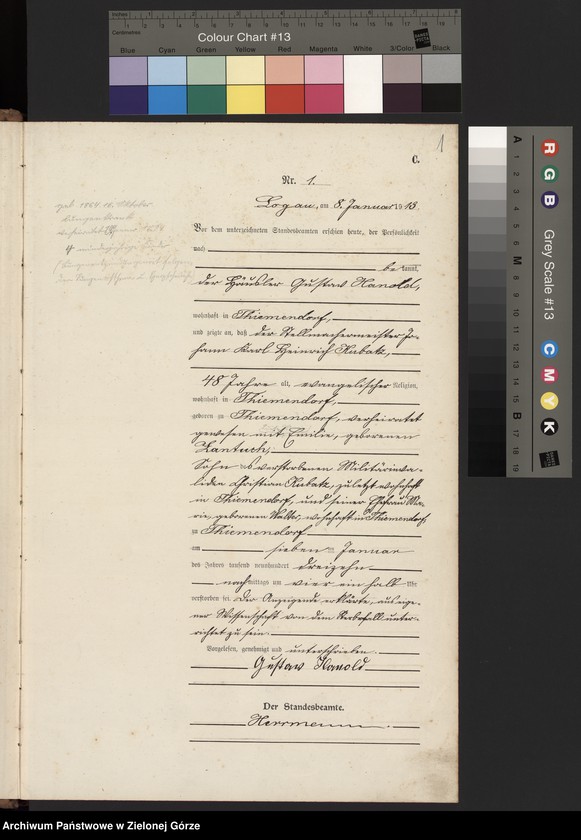 Colour Chart #13
Blue Cyan Green Yellow Red Magenta White 3/Color Black
Grey Scale #13
R G B C M Y K
A 1 2 3 4 5 6 M 8 9 10 11 12 13 14 15 B 17 18 19
1
C.
Nr. 1.
Logau, am 8. Januar 1913.
Vor dem unterzeichneten Standesbeamten erschien heute, der Persönlichkeit
nach
be kannt,
der Häusler Gustav Hanold,
wohnhaft in Thiemendorf,
und zeigte an, daß der Stellmachermeister Jo-
hann Karl Heinrich Kubatz,
48 Jahre alt, evangelischer Religion,
wohnhaft in Thiemendorf,
geboren zu Thiemendorf, verheiratet
gewesen mit Emilie, geborenen
Lantusch,
Sohn des verstorbenen Militärinva-
liden Christian Kubatz, zuletzt wohnhaft
in Thiemendorf, und seiner Ehefrau Ma-
rie, geborenen Walter, wohnhaft in Thiemendorf,
zu Thiemendorf
am sieben ten Januar
des Jahres tausend neunhundert dreizehn
nach mittags um vier ein halb Uhr
verstorben sei. Der Anzeigende erklärte, aus eige-
ner Wissenschaft von dem Sterbefall unter-
richtet zu sein.
Vorgelesen, genehmigt und unterschrieben.
Gustav Hanold
Der Standesbeamte.
Herrmann.
Archiwum Państwowe w Zielonej Górze